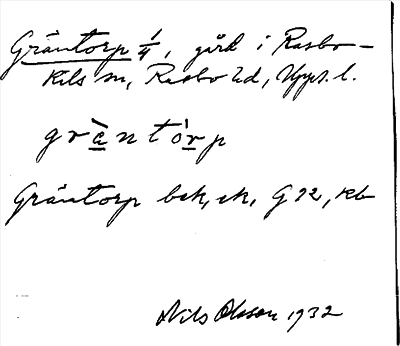 Gräntorp 1/4, gård i Rasbo-
Kils sn, Rasbo hd, Upps. l.
grà̱ntó̱rp
Gräntorp bek, ek, G 92, kb
Nils Olsson 1932